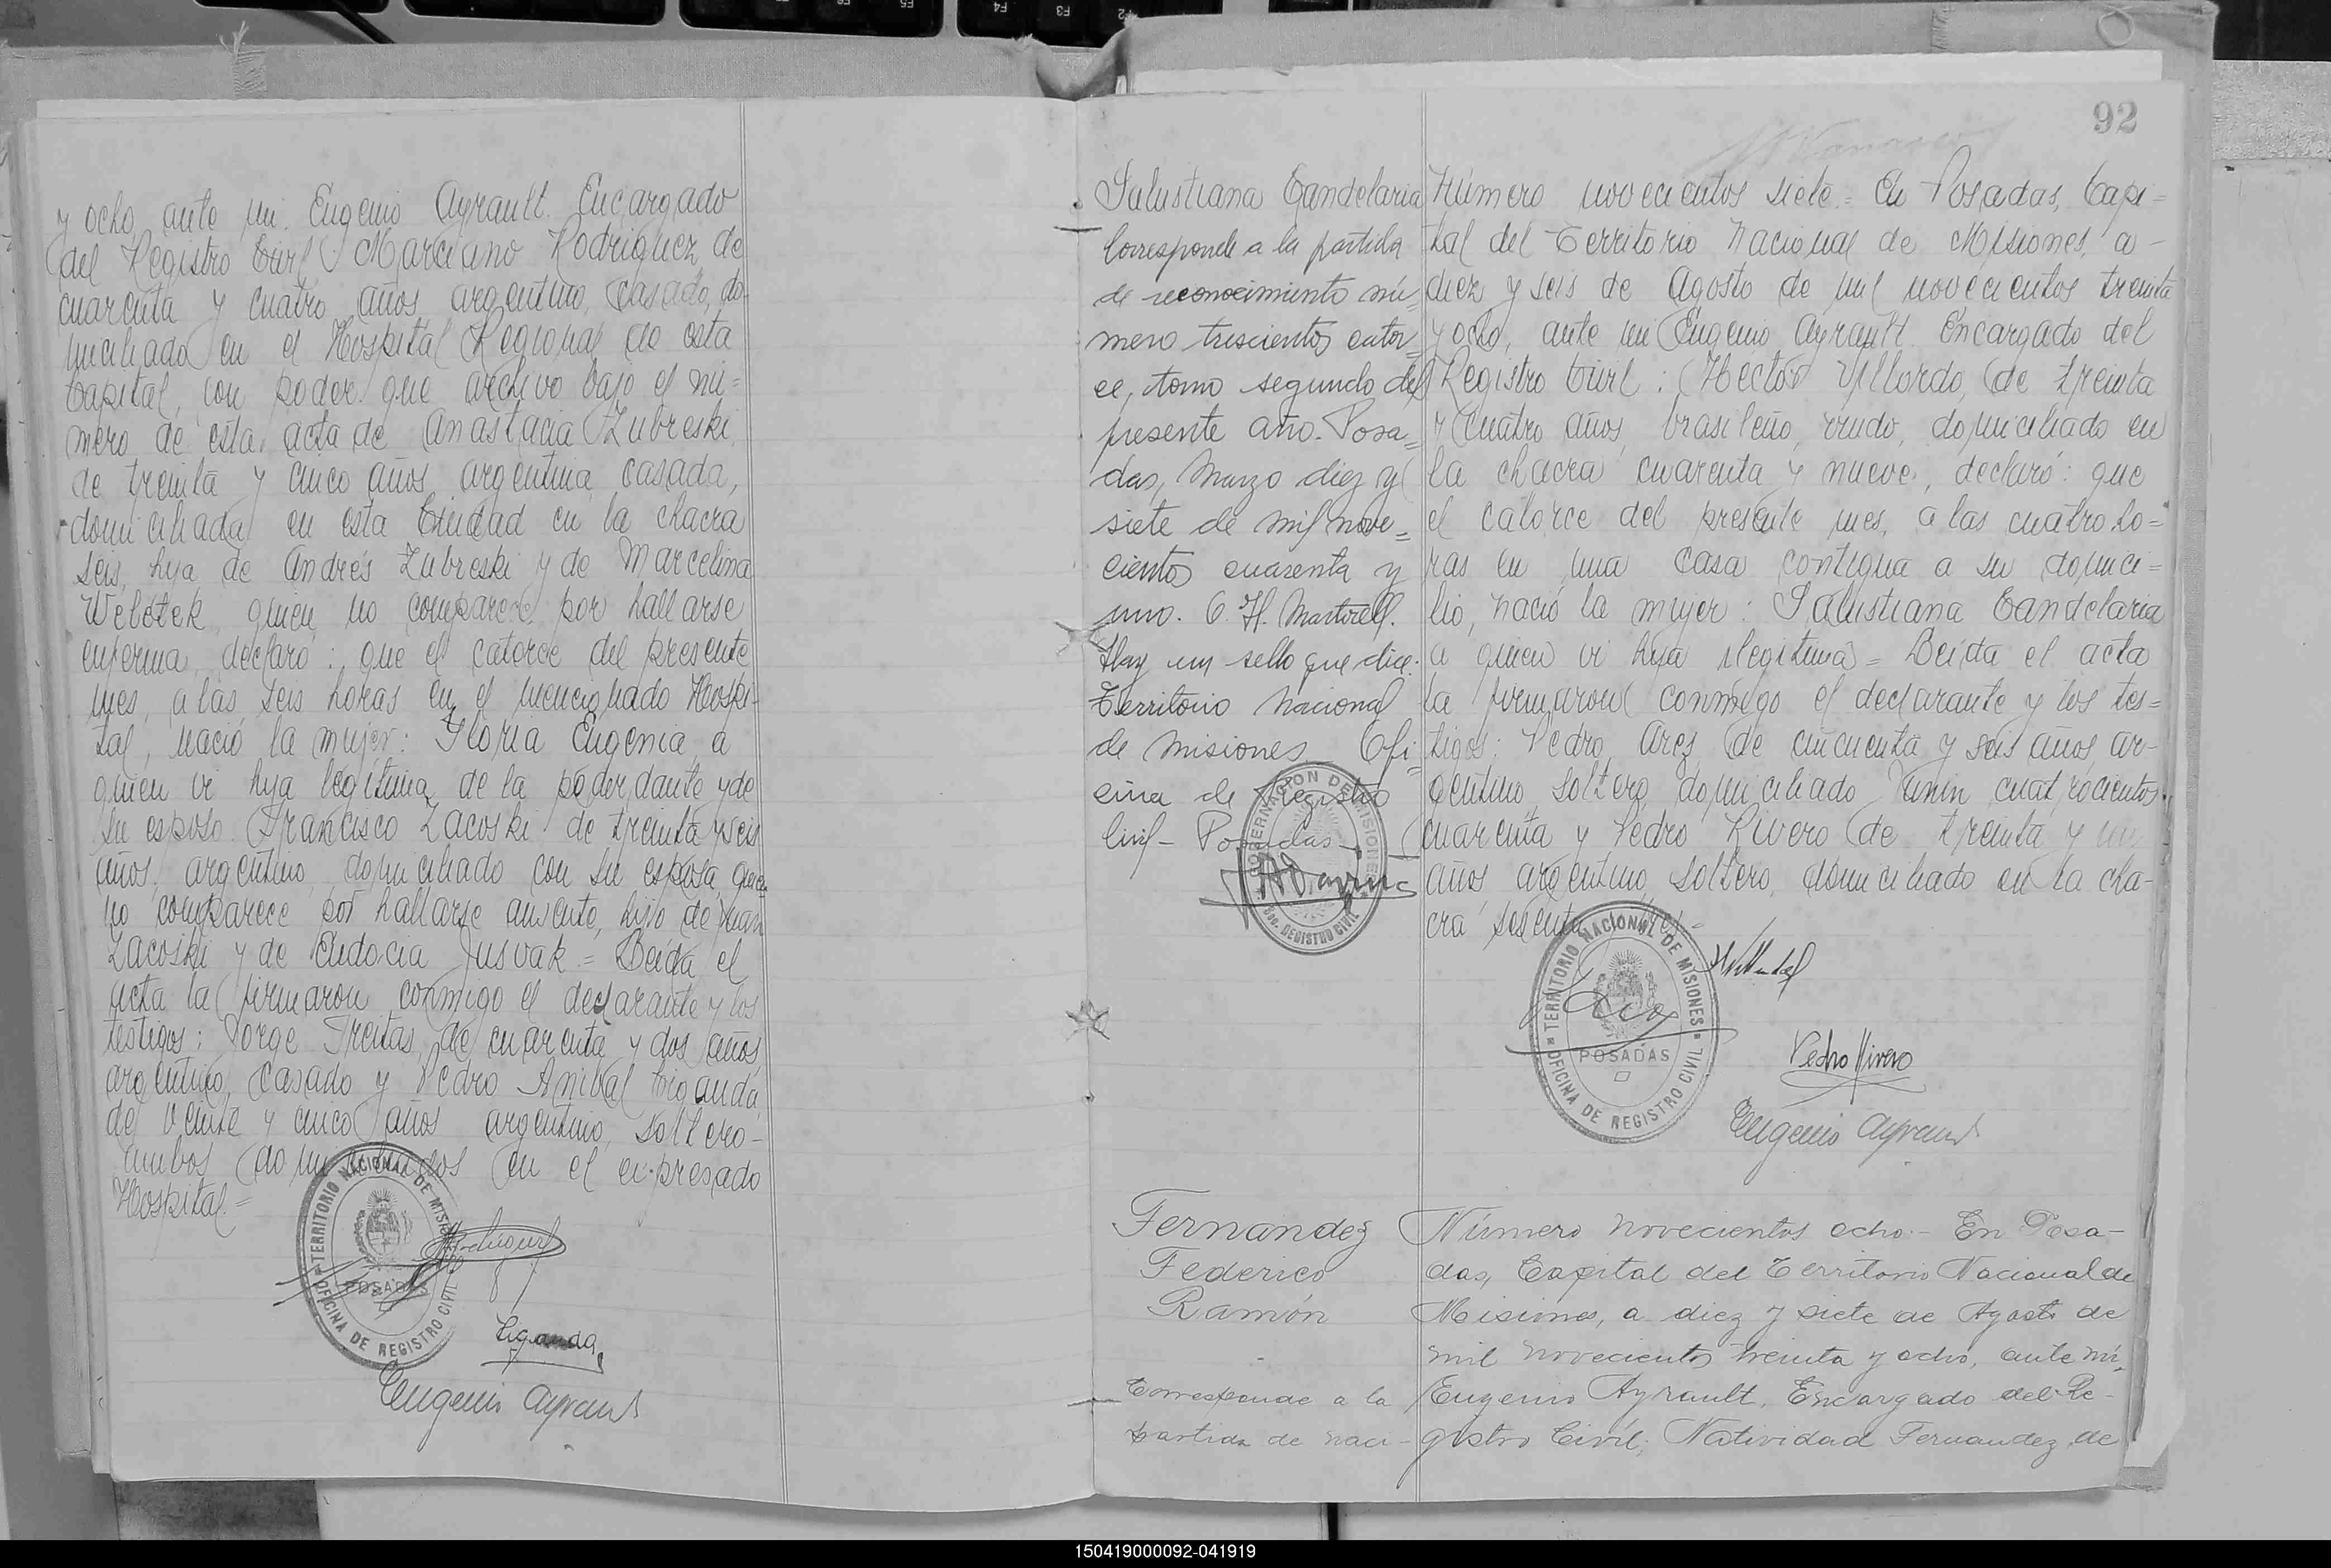 y ocho, ante mi Eugenio Ayrault Encargado
del Registro Civil Marciano Rodriguez, de
cuarenta y cuatro años argentino, casado, do-
miciliado en el Hospital Regional de esta
Capital, con poder que archivo bajo el nú=
mero de esta acta de Anastacia Zubreski,
de treinta y cinco años, argentina, casada,
domiciliada en esta Ciudad en la chacra
seis, hija de Andrés Zubreski y de Marcelina
Welotek, quien no comparece por hallarse
enferma, declaró: que el catorce del presente
mes, a las seis horas en el mencionado Hospi-
tal, nació la mujer: Gloria Eugenia, a
quien vi hija legítima de la poderdante y de
su esposo Francisco Zacoski de treinta y seis
años, argentino, domiciliado con su esposa, quien
no comparece por hallarse ausente, hijo de Juan
Zacoski y de Eudocia Jusvak = Leida el
acta la firmaron conmigo el declarante y los
testigos: Jorge Freitas, de cuarenta y dos años,
argentino, casado y Pedro Anibal Ciganda,
de veinte y cinco años argentino, soltero-
ambos domiciliados en el expresado
Hospital.=
TERRITORIO NACIONAL DE MISIONES
POSADAS
OFICINA DE REGISTRO CIVIL
Ciganda
Eugenio Ayrault
92
Salustiana Candelaria
Corresponde a la partida
de reconocimiento nú-
mero trescientos cator-
ce, tomo segundo del
presente año. Posa=
das, Marzo diez y
siete de mil nove=
cientos cuarenta y
uno. C. H. Martirell.
Hay un sello que dice:
Territorio Nacional
de Misiones Ofi-
cina de Registro
Civil - Posadas -
GOBERNACION DE MISIONES
REGISTRO CIVIL
Número novecientos siete = En Posadas, Capi=
tal del Territorio Nacional de Misiones, a-
diez y seis de Agosto de mil novecientos treinta
y ocho, ante mi Eugenio Ayrault Encargado del
Registro Civil: Hector Villordo, de treinta
y cuatro años, brasileño, viudo, domiciliado en
la chacra cuarenta y nueve, declaró: que
el catorce del presente mes, a las cuatro ho=
ras en una casa contigua a su domici=
lio, nació la mujer: Salustiana Candelaria
a quien vi hija ilegitima = Leida el acta
la firmaron conmigo el declarante y los tes=
tigos: Pedro Arez, de cincuenta y seis años, ar-
gentino, soltero, domiciliado Junin cuatrocientos
cuarenta y Pedro Rivero de treinta y un
años argentino, soltero, domiciliado en la cha-
cra sesenta y tres =
TERRITORIO NACIONAL DE MISIONES
POSADAS
OFICINA DE REGISTRO CIVIL
Pedro Rivero
Eugenio Ayrault
Fernandez
Federico
Ramón
Corresponde a la
partida de naci-
Número novecientos ocho.- En Posa-
das, Capital del Territorio Nacional de
Misiones, a diez y siete de Agosto de
mil novecientos treinta y ocho, ante mí,
Eugenio Ayrault, Encargado del Re-
gistro Civil; Natividad Fernandez, de
150419000092-041919